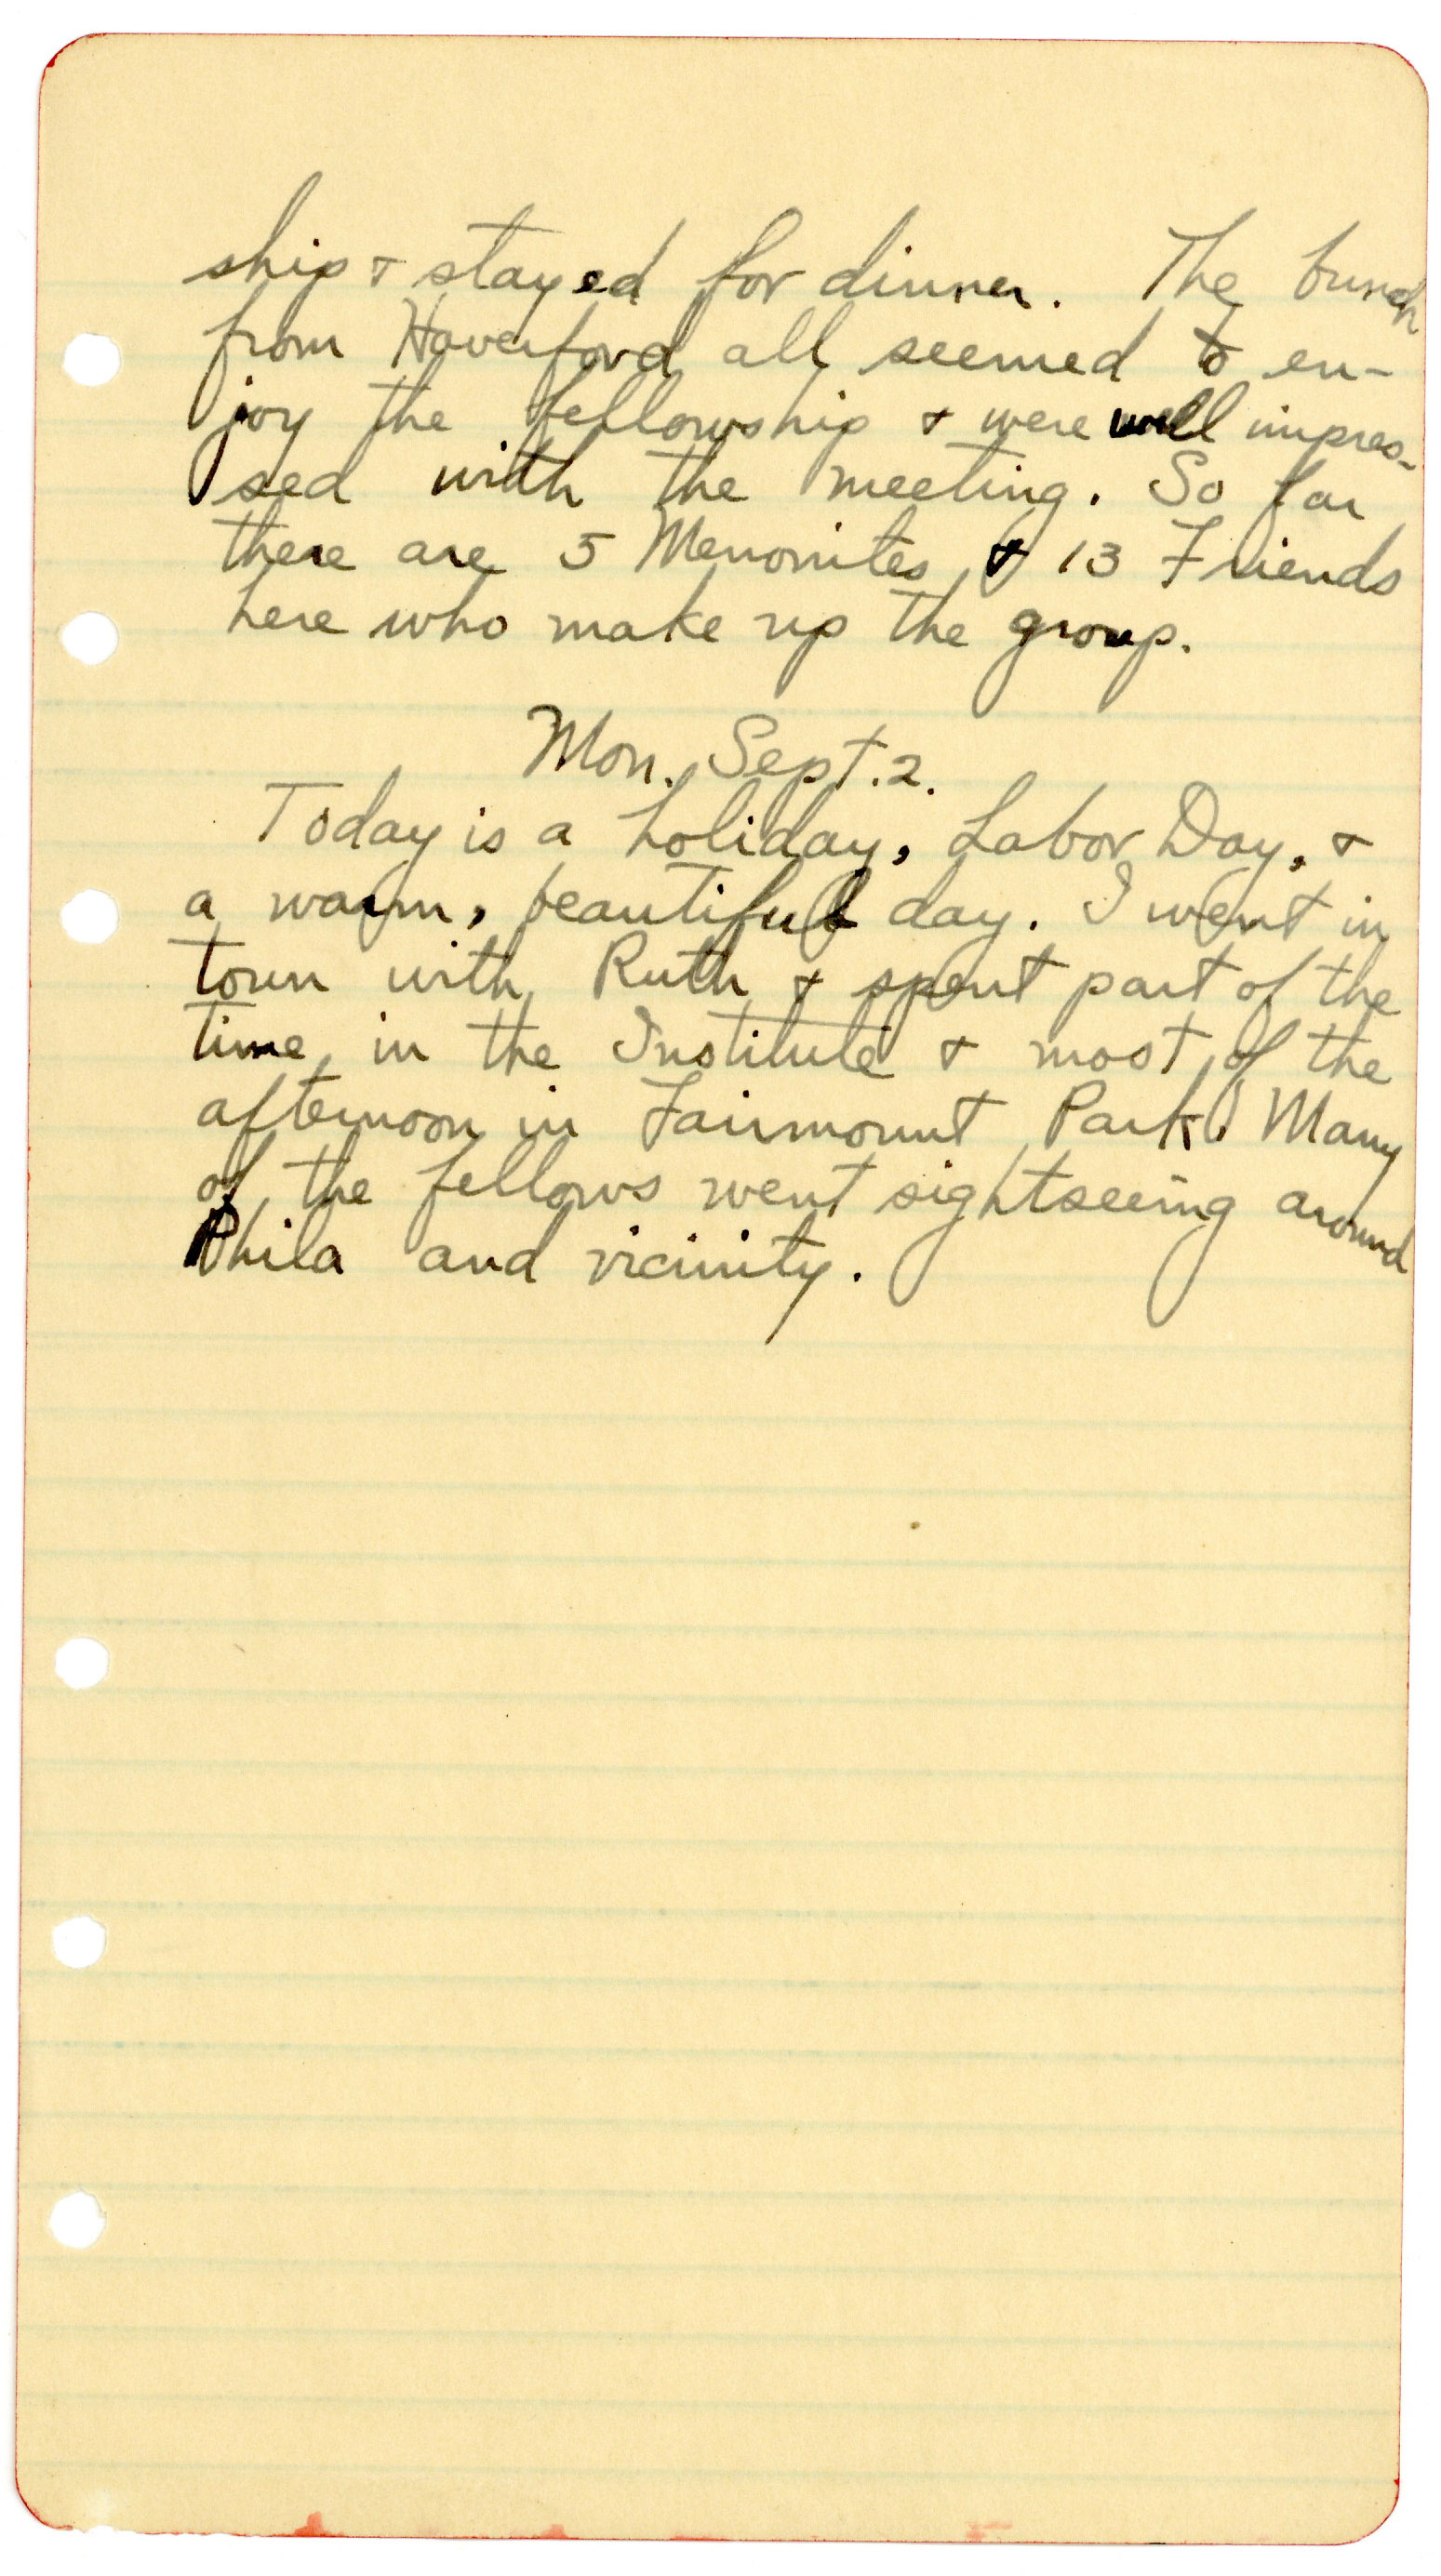 ship & stayed for dinner. The bunch
from Haverford all seemed to en-
joy the fellowship & were well impres-
sed with the meeting. So far
there are 5 Menonites & 13 Friends
here who make up the group.
Mon. Sept. 2.
Today is a holiday, Labor Day, &
a warm, beautiful day. I went in
town with Ruth & spent part of the
time in the Institute & most of the
afternoon in Fairmount Park. Many
of the fellows went sightseeing around
Phila and vicinity.